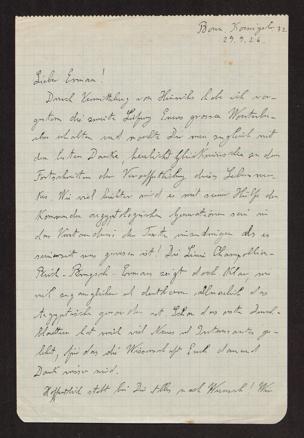 Bonn, Königstr. 32
29.9.26
Lieber Erman!
Durch Vermittelung von Heinrichs habe ich vor-
gestern die zweite Lieferung Eures grossen Wörterbu-
ches erhalten und möchte Dir nun zugleich mit
dem besten Danke, herzlichst Glückwünsche zu dem
Fortschreiten der Veröffentlichung deines Lebenswer-
kes. Wie viel leichter wird es mit seiner Hülfe der
kommenden aegyptologischen Generation sein in
das Verständnis der Texte einzudringen als es
seinerzeit uns gewesen ist! Die Linie Champollion-
Brugsch-Erman zeigt doch klar wie
viel zugänglicher und deutlicher allmählich das
Aegyptische geworden ist. Schon das erste Durch-
blättern hat mich viel Neues und Interessantes ge-
lehrt, für das die Wissenschaft Euch dauernd
Dank wissen wird.
Hoffentlich steht bei Dir alles nach Wunsch! Wir